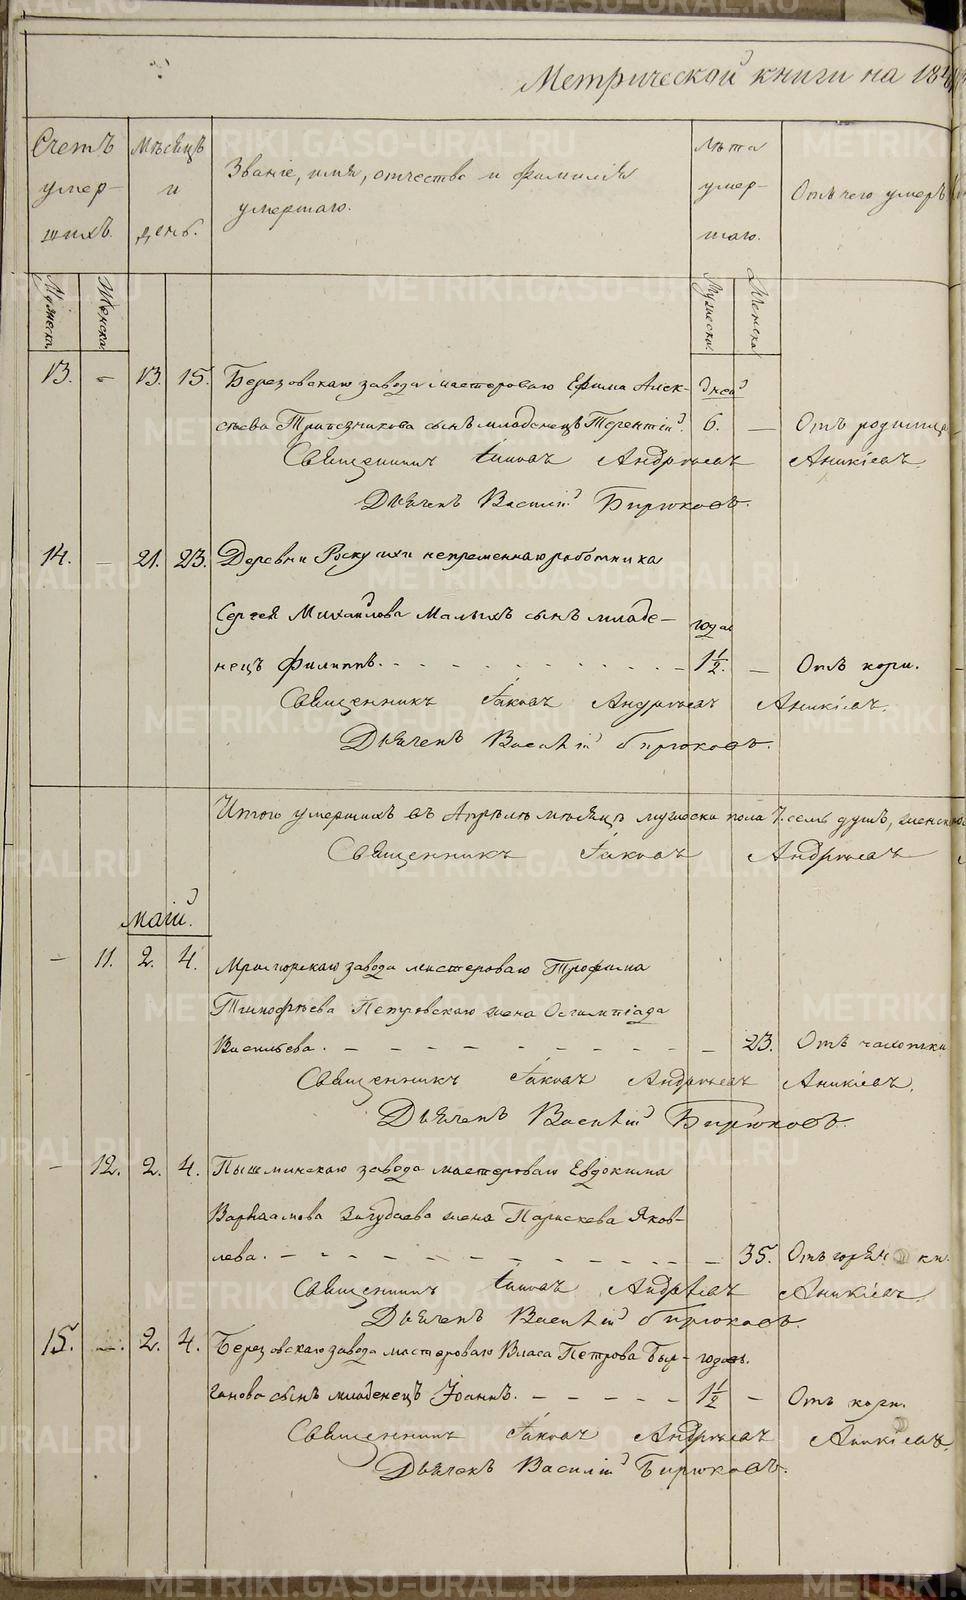 Метрической книги на 184
Счетъ умер- шихъ.
Мѣсяцъ и день.
Званіе, имя, отчество и фамилія
умершаго.
Лѣта умер- шаго.
Отъ чего умеръ
Мужеска. Женска. Мужеска. Женска.
13. - 13. 15. Березовскаго завода мастероваго Ефима Алек- дней
сѣева Трапезникова сынъ младенецъ Терентій. 6. — Отъ родимца
Священникъ Іаковъ Андреевъ Аникіевъ.
Дьячекъ Василій Бирюковъ.
14. — 21. 23. Деревни непременнаго работника
Сергея Михайлова Малыхъ сынъ младе- года
нецъ Филиппъ. 1½. — Отъ кори.
Священникъ Іаковъ Андреевъ Аникіевъ.
Дьячекъ Василій Бирюковъ.
Итого умершихъ въ Апрѣлѣ мѣсяцѣ мужеска пола 7. семь душъ, женска
Священникъ Іаковъ Андреевъ
Маій.
— 11. 2. 4. завода мастероваго Трофима
Тимофѣева Петровскаго жена Олимпіада
Васильева. 23. Отъ чахотки
Священникъ Іаковъ Андреевъ Аникіевъ.
Дьячекъ Василій Бирюковъ.
— 12. 2. 4. Пышминскаго завода мастероваго Евдокима
Варлаамова жена Параскева Яков-
лева. 35. Отъ горяч ки.
Священникъ Іаковъ Андреевъ Аникіевъ.
Дьячекъ Василій Бирюковъ.
15. —. 2. 4. Березовскаго завода мастероваго Власа Петрова Быр- годовъ.
ганова сынъ младенецъ Іоаннъ. 1½ — Отъ кори.
Священникъ Іаковъ Андреевъ Аникіевъ.
Дьячекъ Василій Бирюковъ.
METRIKI.GASO-URAL.RU